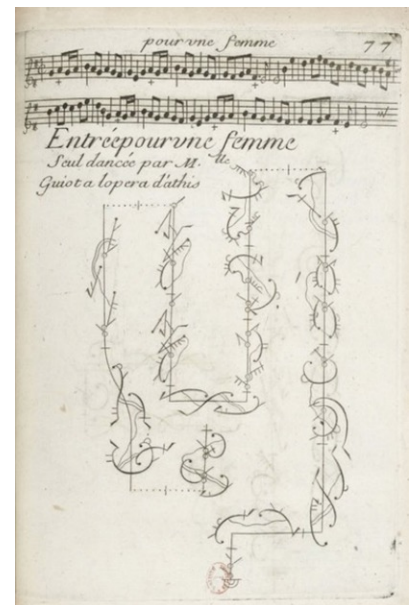 pour vne femme 77
Entrée pour vne femme
Seul dancée par M.lle
Guiot a lopera d'athis